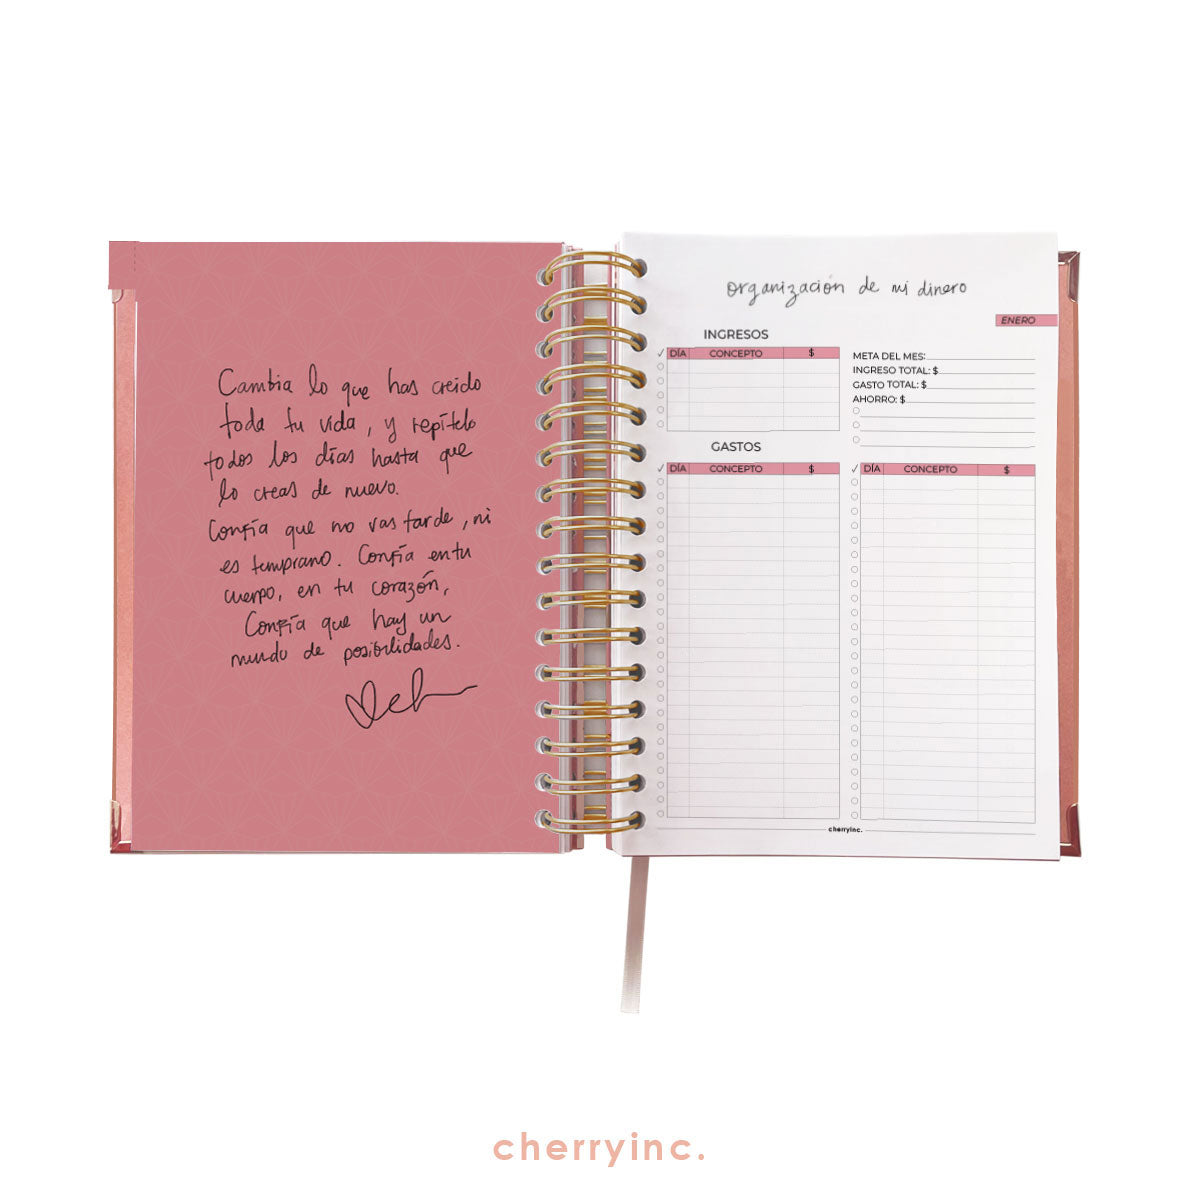 Cambia lo que has creído
toda tu vida, y repítelo
todos los días hasta que
lo creas de nuevo.
Confía que no vas tarde, ni
es temprano. Confía en tu
cuerpo, en tu corazón,
Confía que hay un
mundo de posibilidades.
organización de mi dinero
ENERO
INGRESOS
✓ DÍA CONCEPTO $
META DEL MES:
INGRESO TOTAL: $
GASTO TOTAL: $
AHORRO: $
GASTOS
✓ DÍA CONCEPTO $
✓ DÍA CONCEPTO $
cherryinc.
cherryinc.